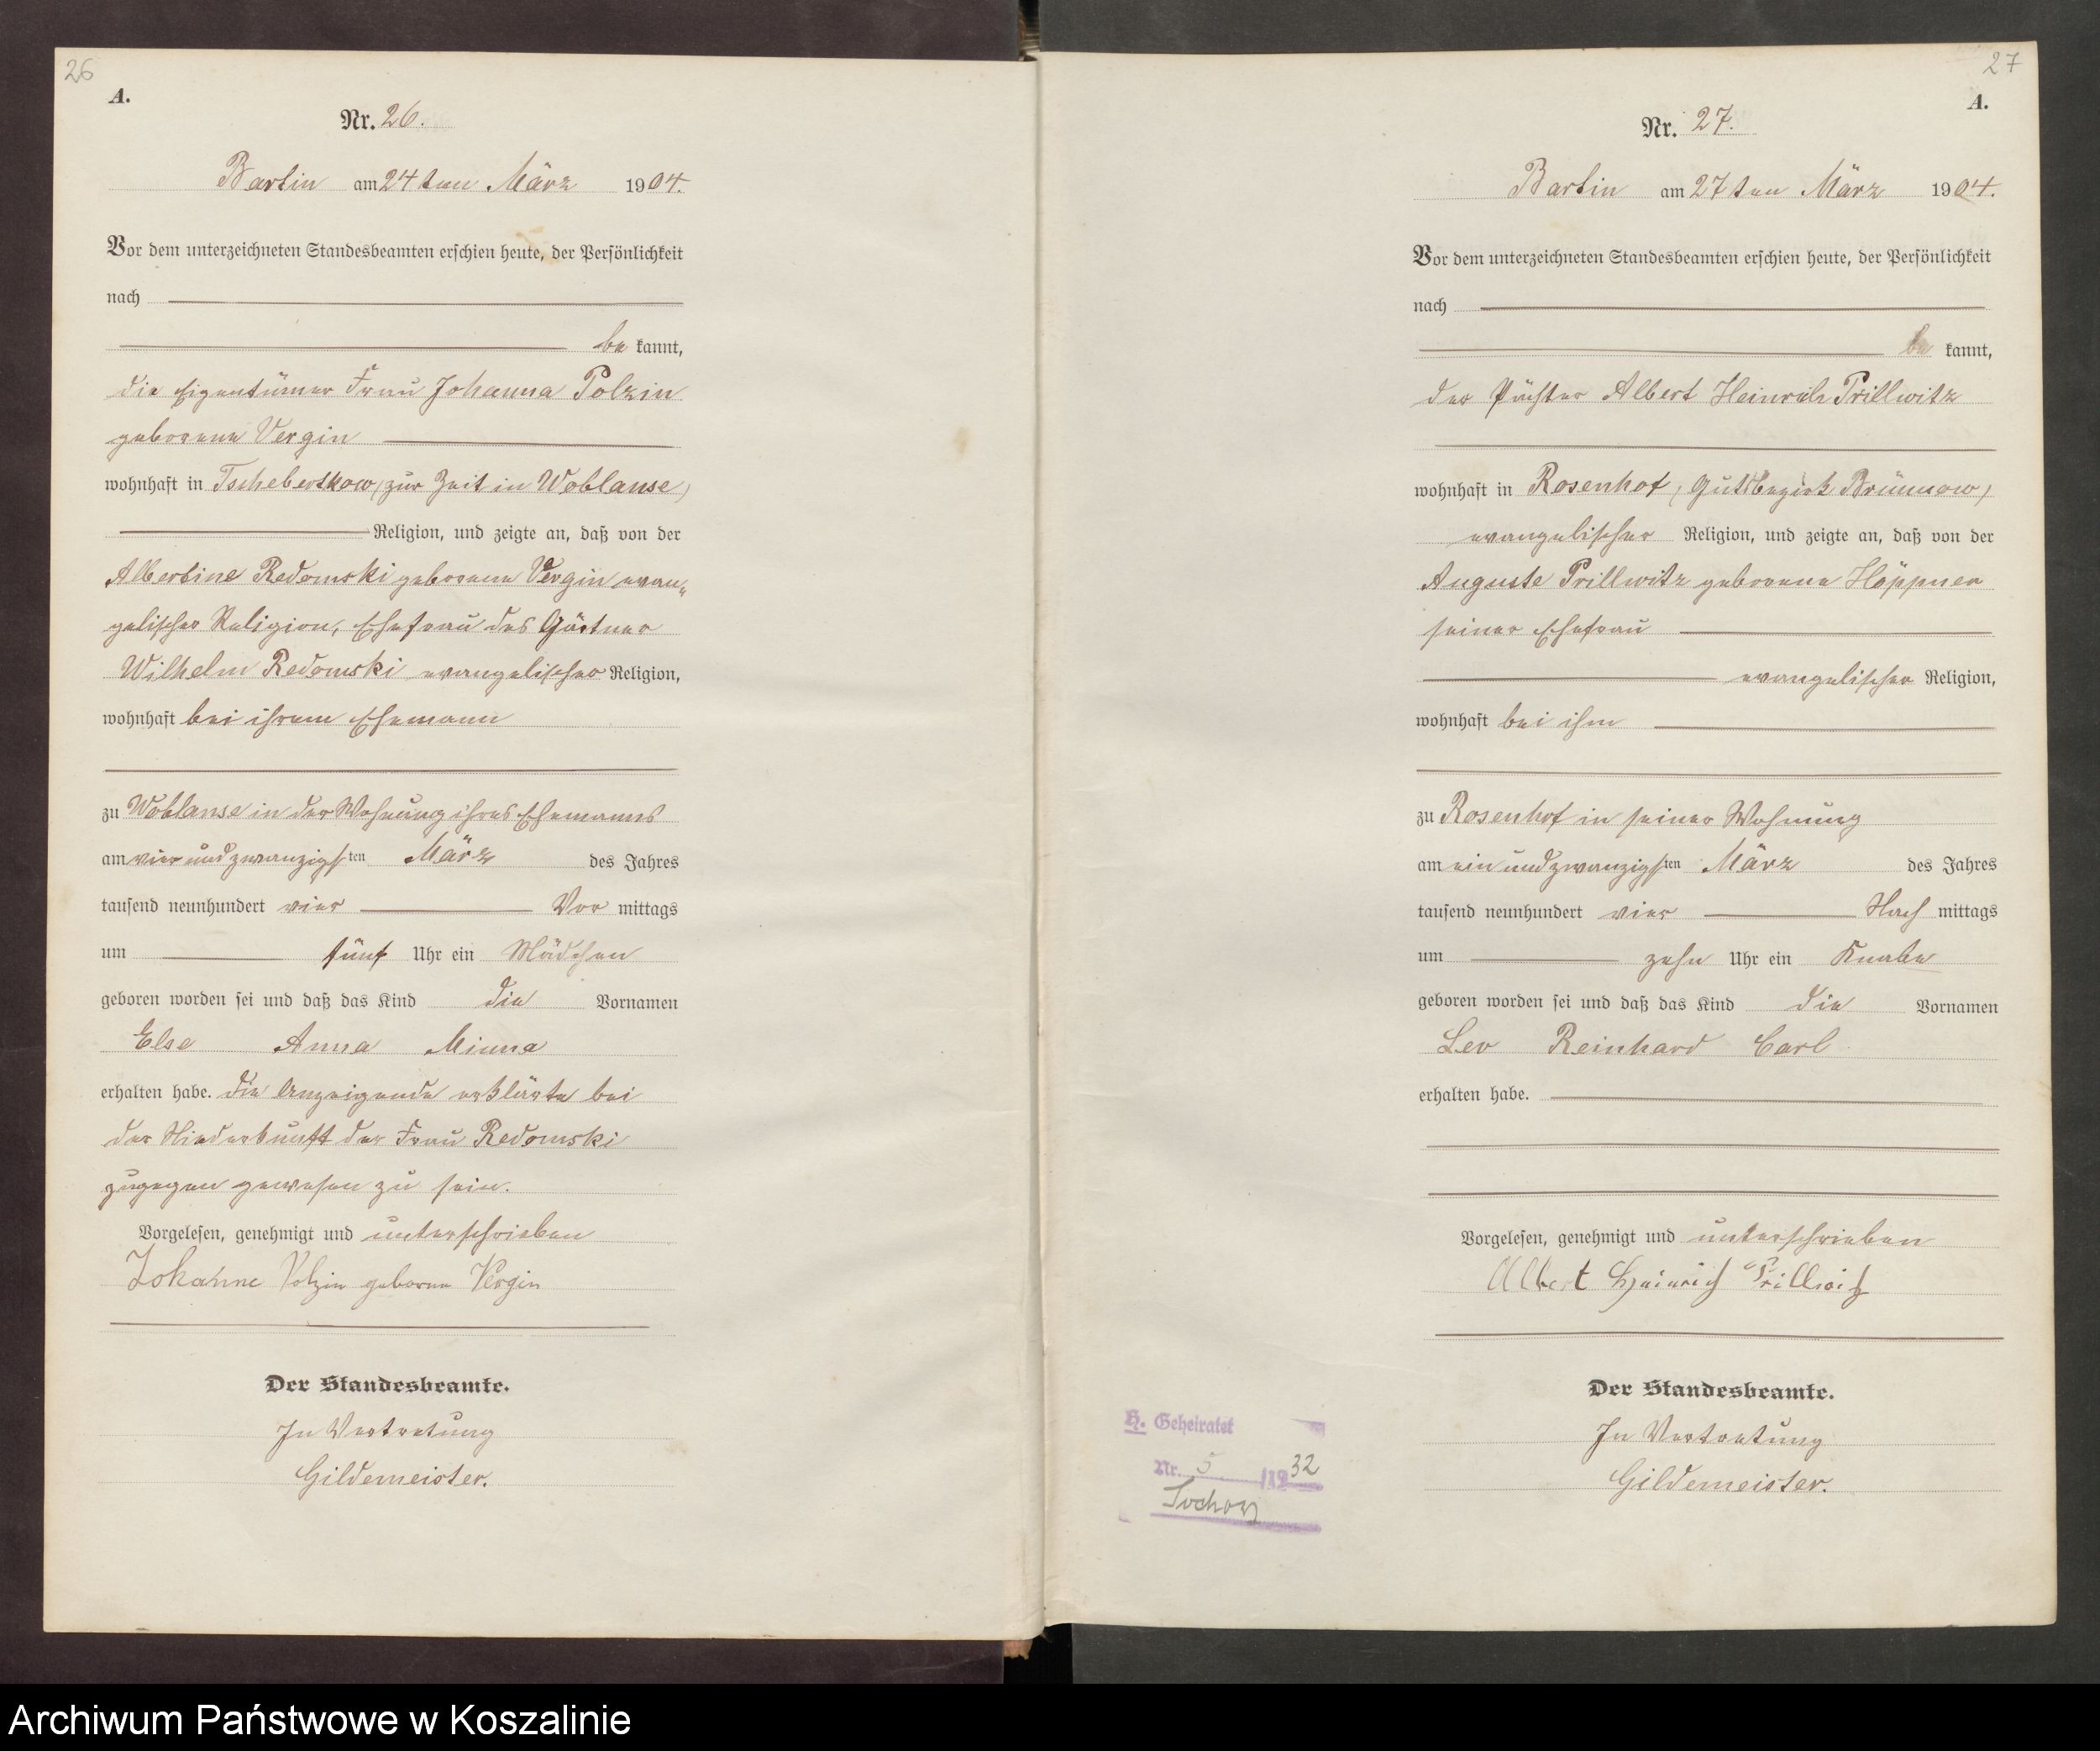 26
A.
Nr. 26.
Bartin am 24ten März 1904.
Vor dem unterzeichneten Standesbeamten erschien heute, der Persönlichkeit
nach
be kannt,
die Eigentümer Frau Johanna Polzin
geborene Vergin
wohnhaft in Tschebertkow (zur Zeit in Woblanse)
Religion, und zeigte an, daß von der
Albertine Redomski geborene Vergin evan„
gelischer Religion, Ehefrau des Gärtner
Wilhelm Redomski evangelischer Religion,
wohnhaft bei ihrem Ehemann
zu Woblanse in der Wohnung ihres Ehemanns
am vierundzwanzigsten März des Jahres
tausend neunhundert vier Vor mittags
um fünf Uhr ein Mädchen
geboren worden sei und daß das Kind die Vornamen
Else Anna Minna
erhalten habe. Die Anzeigende erklärte bei
der Niederkunft der Frau Redomski
zugegen gewesen zu sein.
Vorgelesen, genehmigt und unterschrieben
Johanne Polzin geborne Vergin
Der Standesbeamte.
In Vertretung
Gildemeister.
27
A.
Nr. 27.
Bartin am 27ten März 1904.
Vor dem unterzeichneten Standesbeamten erschien heute, der Persönlichkeit
nach
be kannt,
der Pächter Albert Heinrich Prillwitz
wohnhaft in Rosenhof, (Gutsbezirk Brünnow)
evangelischer Religion, und zeigte an, daß von der
Auguste Prillwitz geborene Höppner
seiner Ehefrau
evangelischer Religion,
wohnhaft bei ihm
zu Rosenhof in seiner Wohnung
am einundzwanzigsten März des Jahres
tausend neunhundert vier Nach mittags
um zehn Uhr ein Knabe
geboren worden sei und daß das Kind die Vornamen
Leo Reinhard Carl
erhalten habe.
Vorgelesen, genehmigt und unterschrieben
Albert Heinrich Prillwitz
Der Standesbeamte.
In Vertretung
Gildemeister.
H. Geheiratet
Nr. 5 /1932
Sochow
Archiwum Państwowe w Koszalinie